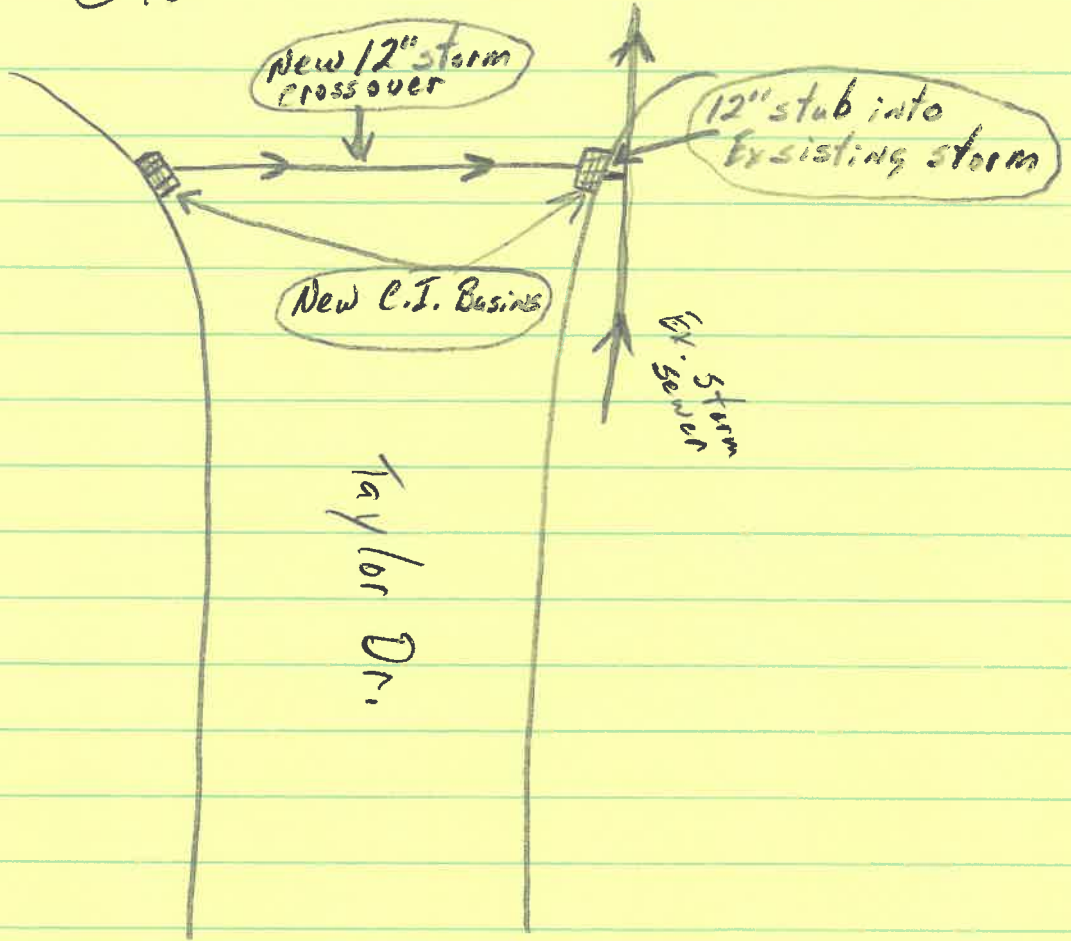 New 12" storm
crossover
12" stub into
Exsisting storm
New C.I. Basins
Ex. Storm
Sewer
Taylor Dr.